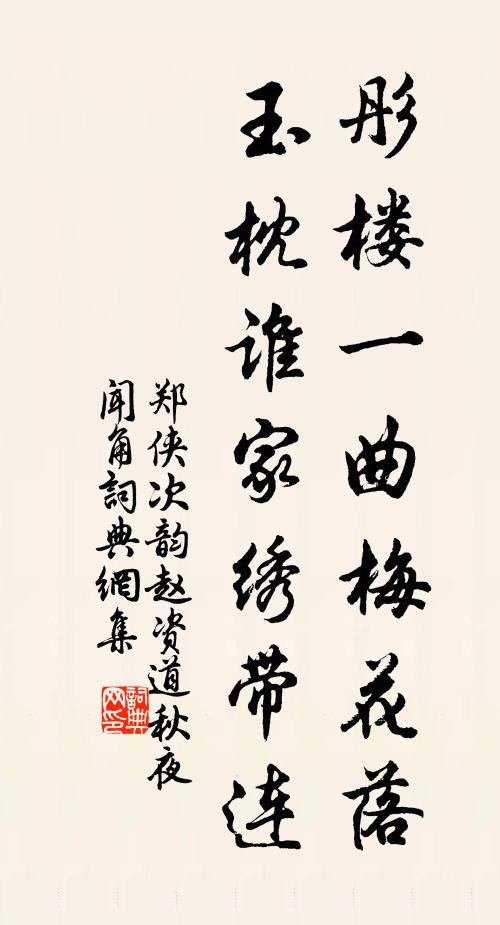 彤楼一曲梅花落
玉枕谁家绣带连
郑侠次韵赵资道秋夜
闻角詞典網集
詞典
网印